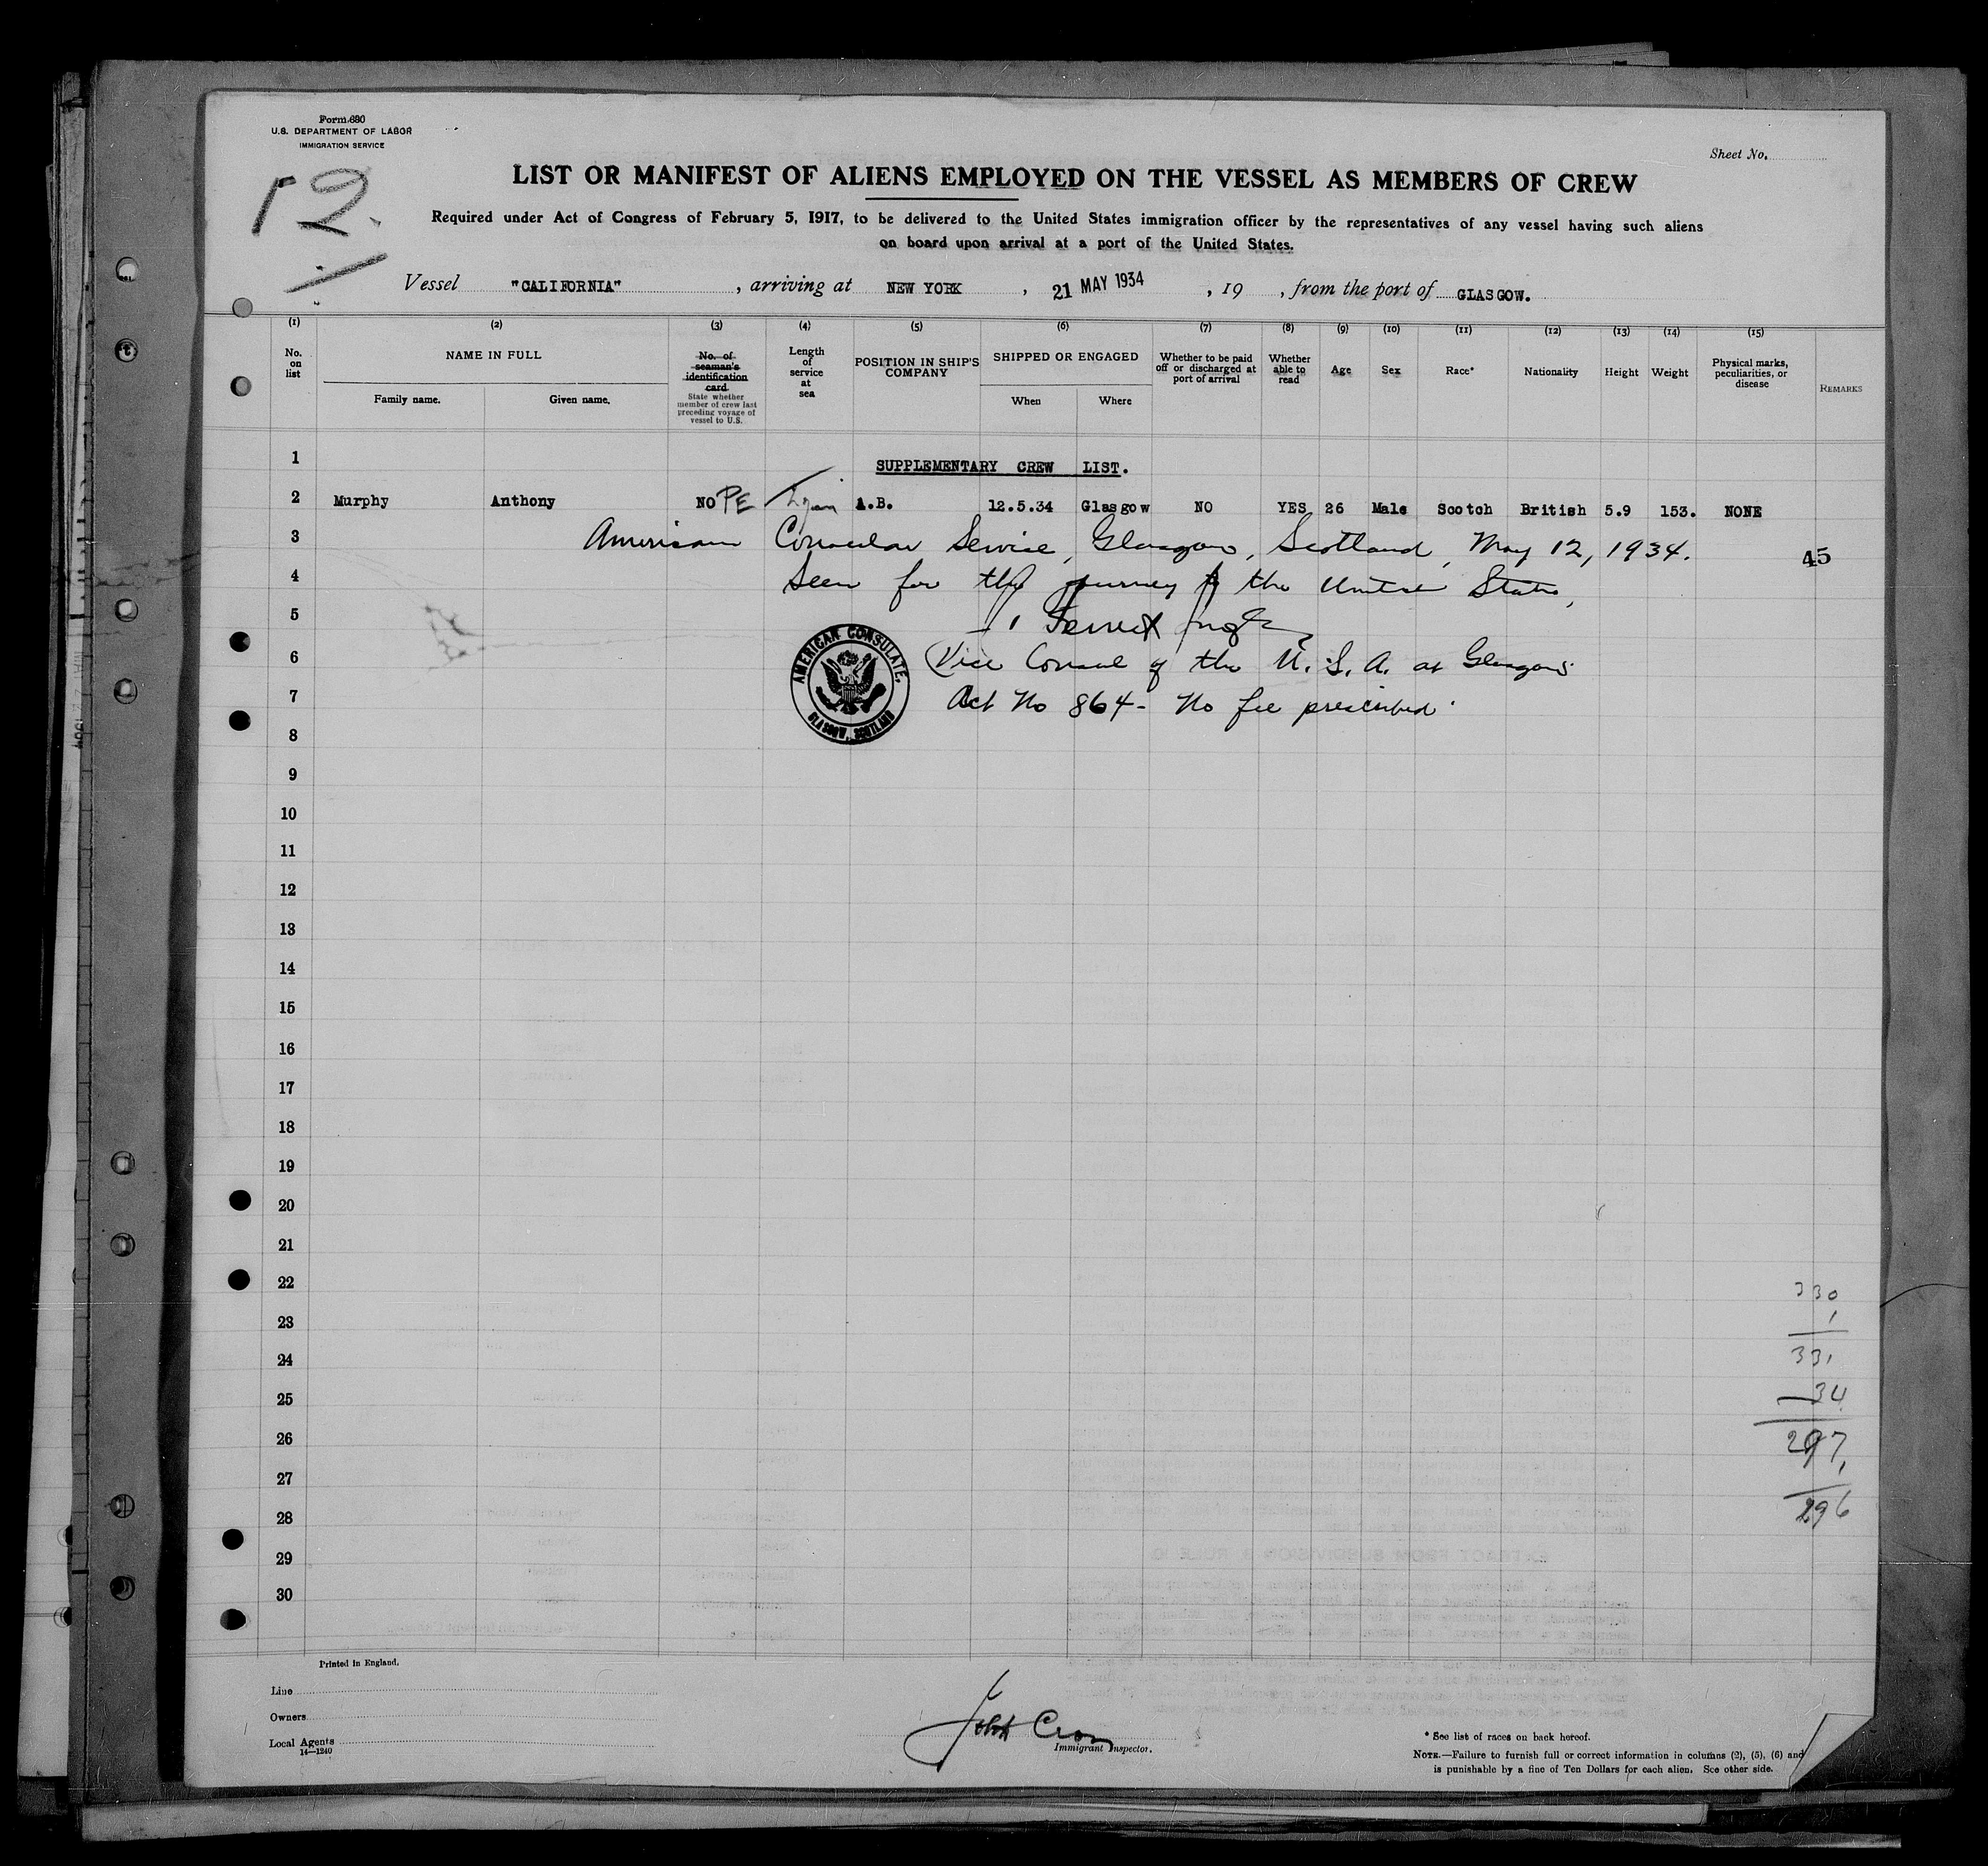 Form 680
U.S. DEPARTMENT OF LABOR
IMMIGRATION SERVICE
Sheet No.
12.
LIST OR MANIFEST OF ALIENS EMPLOYED ON THE VESSEL AS MEMBERS OF CREW
Required under Act of Congress of February 5, 1917, to be delivered to the United States immigration officer by the representatives of any vessel having such aliens
on board upon arrival at a port of the United States.
Vessel "CALIFORNIA", arriving at NEW YORK, 21 MAY 1934, 19, from the port of GLASGOW.
(1) (2) (3) (4) (5) (6) (7) (8) (9) (10) (11) (12) (13) (14) (15)
No. on list
NAME IN FULL
Family name. Given name.
No. of seaman's identification card
State whether member of crew last preceding voyage of vessel to U.S.
Length of service at sea
POSITION IN SHIP'S COMPANY
SHIPPED OR ENGAGED
When Where
Whether to be paid off or discharged at port of arrival
Whether able to read
Age
Sex
Race*
Nationality
Height
Weight
Physical marks, peculiarities, or disease
REMARKS
1 SUPPLEMENTARY CREW LIST.
2 Murphy Anthony NO PE A.B. 12.5.34 Glasgow NO YES 26 Male Scotch British 5.9 153. NONE
3 American Consular Service, Glasgow, Scotland, May 12, 1934.
45
4 Seen for the journey to the United States,
5
6 Vice Consul of the U.S.A. at Glasgow
7 Act No 864 - No fee prescribed.
AMERICAN CONSULATE.
GLASGOW, SCOTLAND
8
9
10
11
12
13
14
15
16
17
18
19
20
21
22
23
24
25
26
27
28
29
30
330
1
331
34
297
1
296
Printed in England.
Line
Owners
Local Agents
14—1240
John Cron
Immigrant Inspector.
* See list of races on back hereof.
NOTE.—Failure to furnish full or correct information in columns (2), (5), (6) and
is punishable by a fine of Ten Dollars for each alien. See other side.